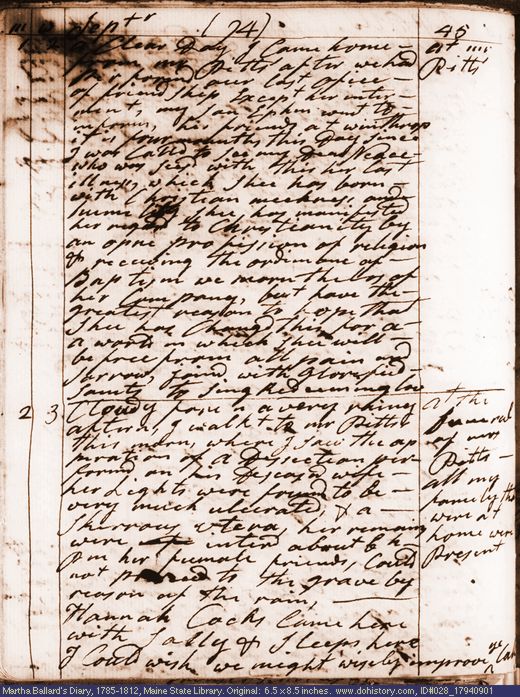 m D Septr (94) 45
1 2 a Clear Day I Came home
from mr Pitts after we had
performd our last office
of friendship Except her inter
ment, my son Ephm went to
it is four months this Day since
I was Calld to see
who was seisd with this her last
illness, which Shee has born
with Christian meekness, and
Shee has manifested
her right to Christianity by
an open profession of religion
& receiving the ordinence of
Baptism we mourn the loss of
her Company, but have the
greatest reason to hope that
Shee has Changd this for a
a world in which Shee will
be free from all pain and
Sorrow, Joind with Glorefied
Saints to sing Redeeming love
at mr
Pitts
2 3 Cloudy forn n a very rainy
aftern. I walkt to mr Pitts
this morn, where I saw the op
peration of a Dissection per
formd on his Deceasd wife
her Lights were found to be
very much ulcerated & a
Sherrous utera, her remains
were interd about 6 h
pm her female friends, Could
not proceed to the grave by
reason of the rain,
Hannah Cocks Came here
with Sally & Sleeps here
I Could wish we might wisely improve ye
at the
funeral
of mrs
Pitts
all my
family that
were at
home were
Present
Martha Ballard's Diary, 1785-1812, Maine State Library. Original: 6.5 x 8.5 inches. www.dohistory.com, ID#028_17940901